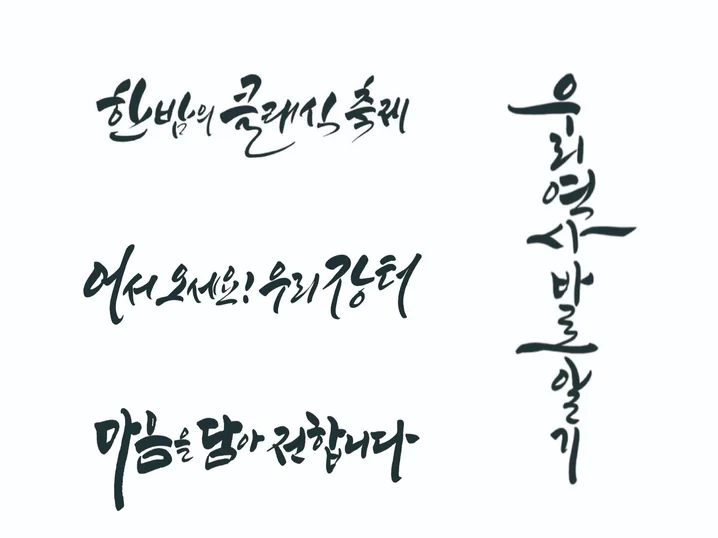 한밤의 클래식 축제
어서 오세요! 우리 장터
마음을 담아 전합니다
우리 역사 바로 알기